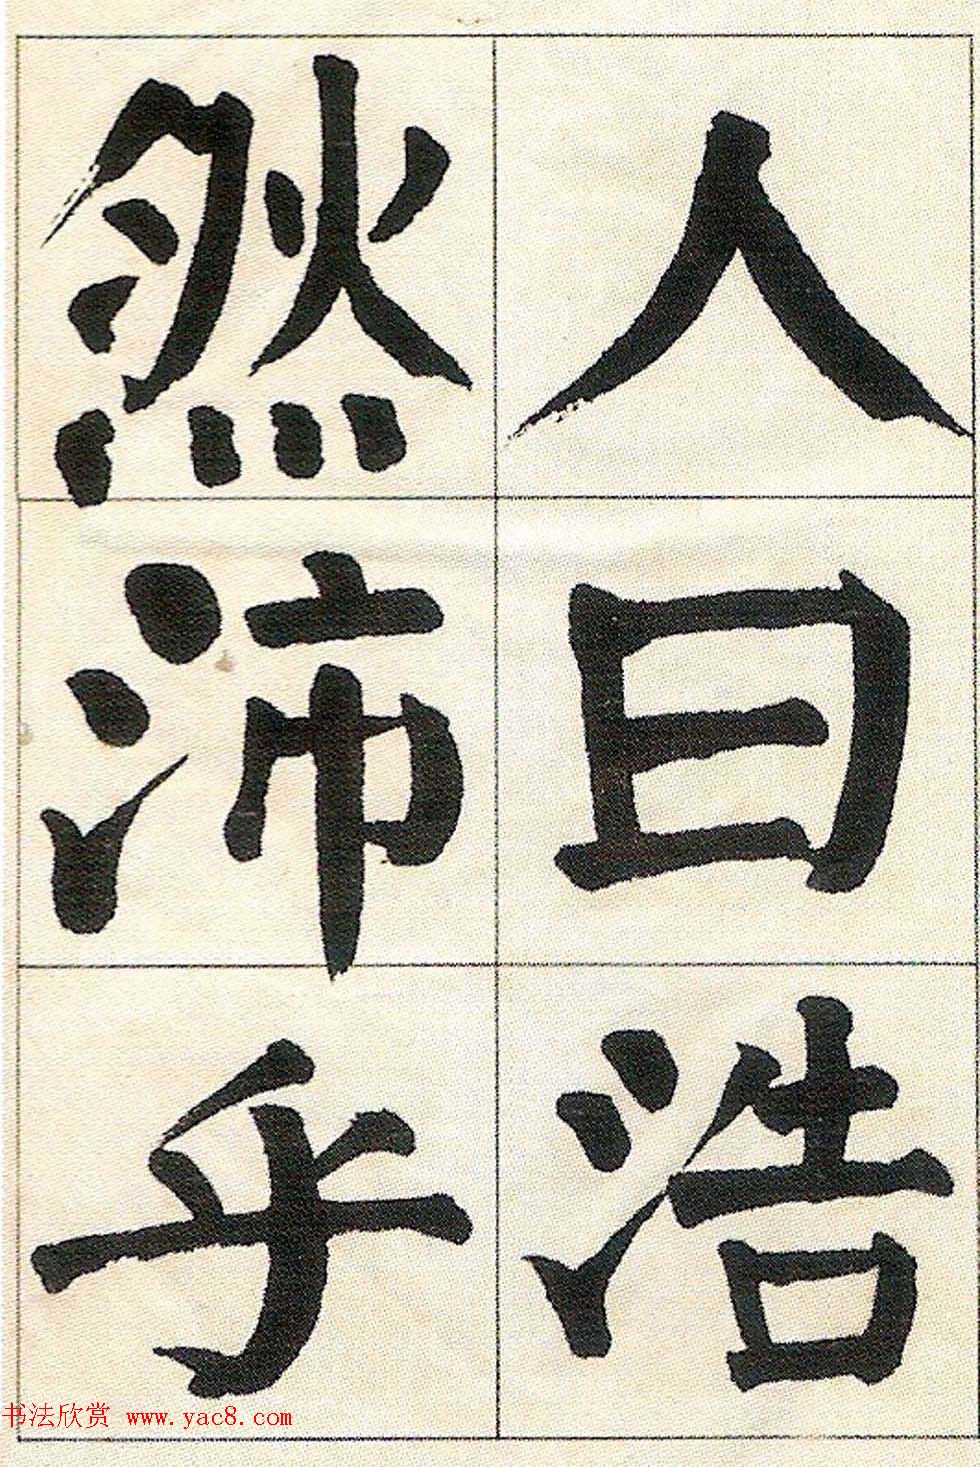 人曰浩
然沛乎
书法欣赏 www.yac8.com